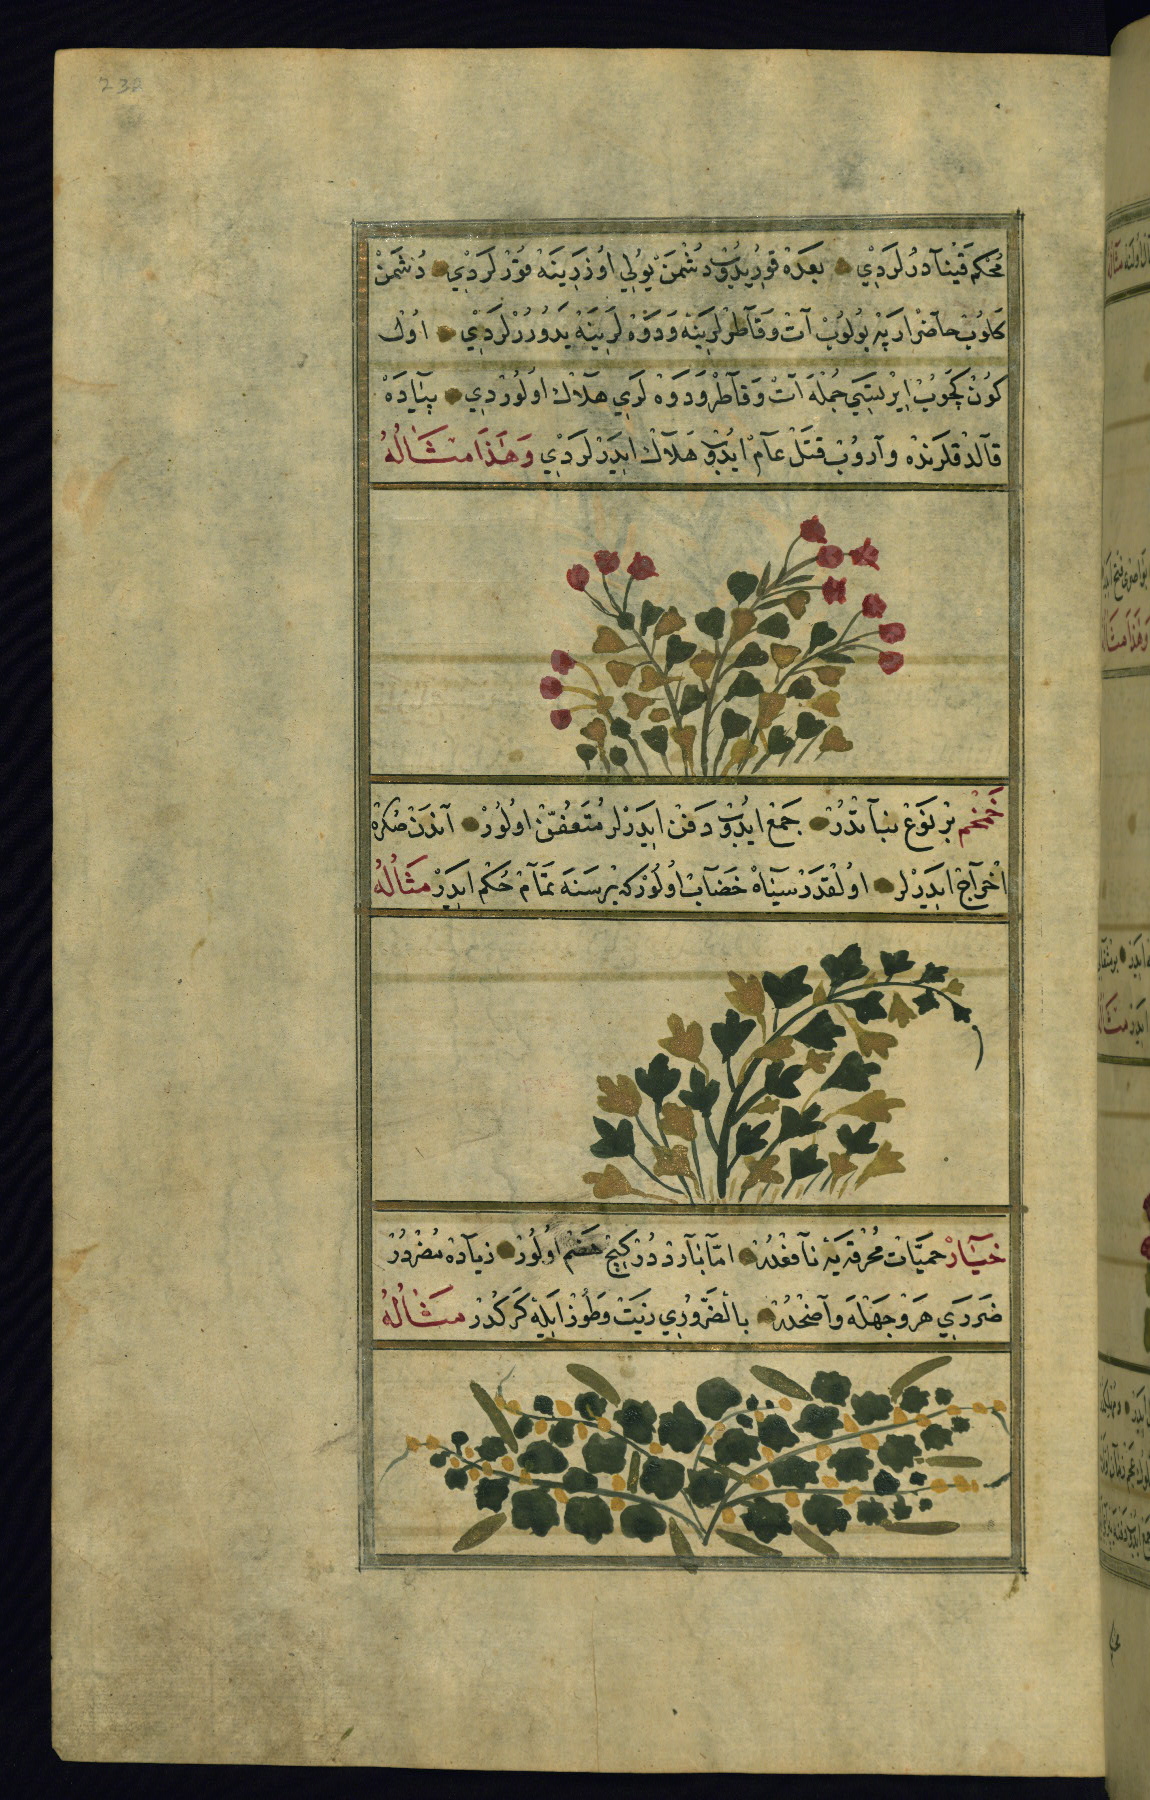 مُحْكَم قَيْنَآدُرْلَرْدِي بَعْدَهْ قُورِيدُوبْ دُشْمَنْ يُولِي اُوزَرِينَهْ قُورْلَرْدِي دُشْمَنْ
كَلُوبْ حَآضِرْ اَرْپَهْ بُولُوبْ آتْ وَقَآطِرْلَرِينَهْ وَدَوَهْ لَرِينَهْ يَدُورُرْلَرْدِي اُولْ
كُونْ كِچُوبْ اِيرْتَسِي جُمْلَهْ آتْ وَقَآطِرْ وَدَوَهْ لَرِي هَلَآكْ اُولُورْدِي پِيَآدَهْ
قَآلْدُقْلَرِنْدَهْ وَآرُوبْ قَتْلِ عَآمْ اِيدُوبْ هَلَآكْ اِيدَرْلَرْدِي وَهَذَا مِثَالُهُ
بِرْ نَوْعْ نَبَآتْدُرْ جَمْعْ اِيدُوبْ دَفْنْ اِيدَرْلَرْ مُتَعَفِّنْ اُولُورْ آنْدَنْ صُكْرَهْ
اِخْرَآجْ اِيدَرْلَرْ اُولْقَدَرْ سِيَآهْ خِضَآبْ اُولُورْكِهْ بِرْ سَنَهْ تَمَآمْ حُكْم اِيدَرْ مِثَالُهُ
خِيَارْ حُمِيَّاتِ مُحْرِقَهْ يَهْ نَآفِعْدُرْ اَمَّا بَآرِدْدُرْ كِيچْ هَضْم اُولُورْ زِيَآدَهْ مُضِرْدُرْ
ضَرَرِي هَرْ وَجْهْلَهْ وَآضِحْدُرْ بِالضَّرُورِي زَيْتْ وَطُوزْ اَيْلَهْ كَرَكْدُرْ مِثَالُهُ